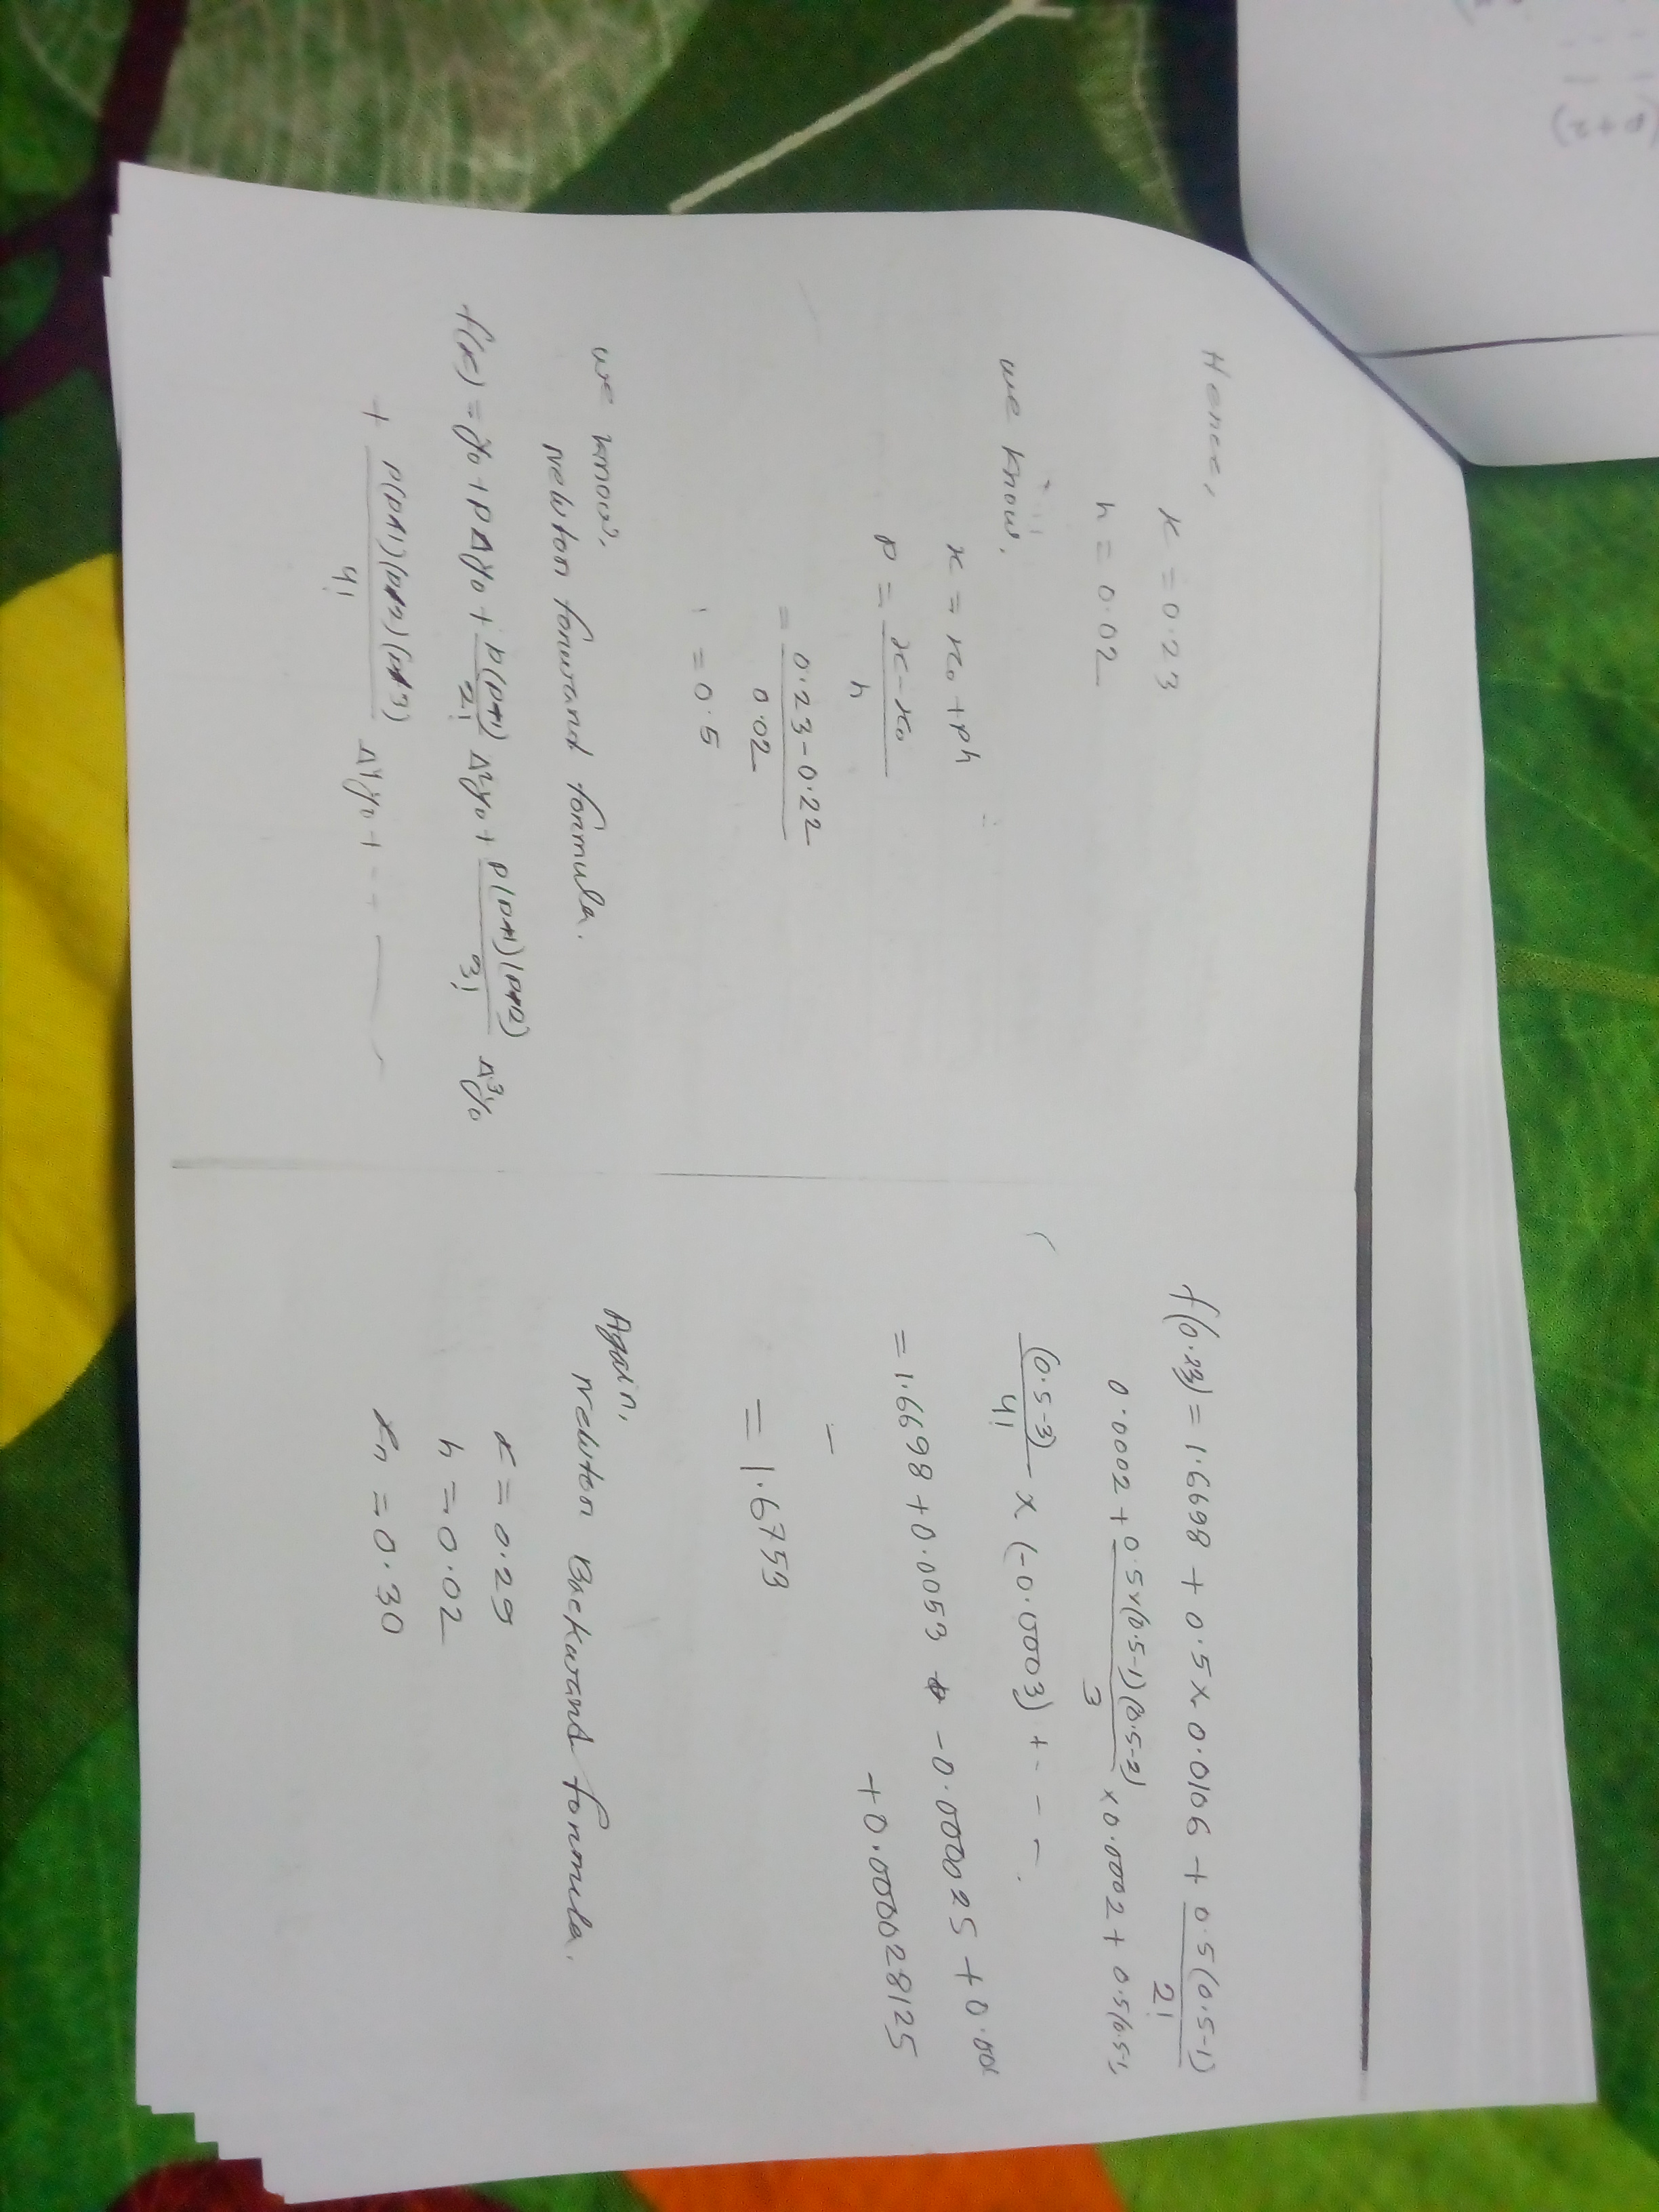 Hence,
x = 0.23
h = 0.02
we know,
x = x₀ + ph
p = x - x₀ / h
= 0.23 - 0.22 / 0.02
= 0.5
we know,
newton forward formula.
f(x) = y₀ + pΔy₀ + p(p+1)/2! Δ²y₀ + p(p+1)(p+2)/3! Δ³y₀
+ p(p+1)(p+2)(p+3)/4! Δ⁴y₀ + - - -
f(0.23) = 1.6698 + 0.5 x 0.0106 + 0.5(0.5-1)/2!
0.0002 + 0.5x(0.5-1)(0.5-2)/3 x 0.0002 + 0.5(0.5-1)
(0.5-3)/4! x (-0.0003) + - - - .
= 1.6698 + 0.0053 - 0.000025 + 0.00
+ 0.000028125
=
= 1.6759
Again,
newton Backward formula.
x = 0.29
h = 0.02
xn = 0.30
(p+2)